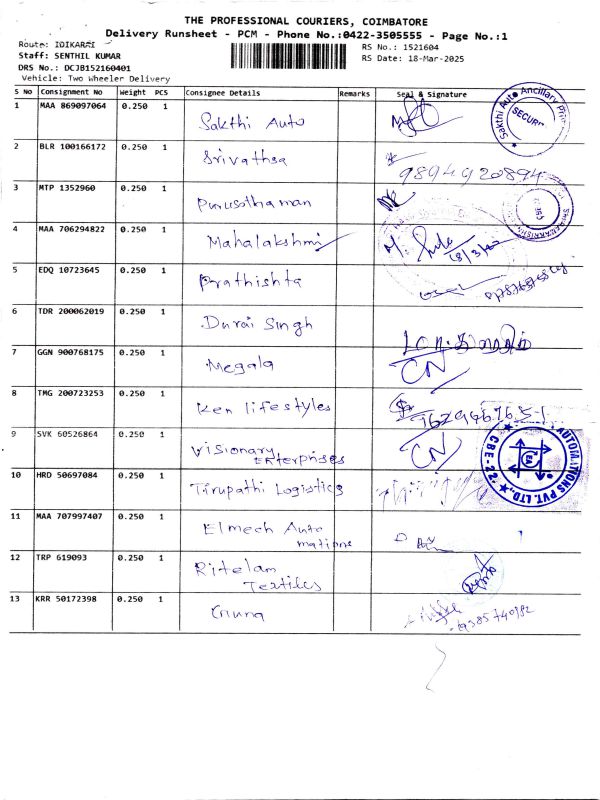 THE PROFESSIONAL COURIERS, COIMBATORE
Delivery Runsheet - PCM - Phone No.:0422-3505555 - Page No.:1
Route: IDIKARAI
RS No.: 1521604
Staff: SENTHIL KUMAR
RS Date: 18-Mar-2025
DRS No.: DCJB152160401
Vehicle: Two Wheeler Delivery
S No Consignment No Weight PCS Consignee Details Remarks Seal & Signature
1 MAA 869097064 0.250 1 Sakthi Auto
Sakthi Auto Ancillary
2 BLR 100166172 0.250 1 Srivathsa 9894920894
3 MTP 1352960 0.250 1 Purusothaman
4 MAA 706294822 0.250 1 Mahalakshmi
5 EDQ 10723645 0.250 1 Prathishta
6 TDR 200062019 0.250 1 Durai Singh
7 GGN 900768175 0.250 1 Megala CN
8 TMG 200723253 0.250 1 Ken lifestyles
9 SVK 60526864 0.250 1 Visionary CN
Enterprises
AUTOMATIONS PVT. LTD.,
EA
10 HRD 50697084 0.250 1 Tirupathi Logistics
11 MAA 707997407 0.250 1 Elmech Auto
mations
12 TRP 619093 0.250 1 Ritelam
Textiles
13 KRR 50172398 0.250 1